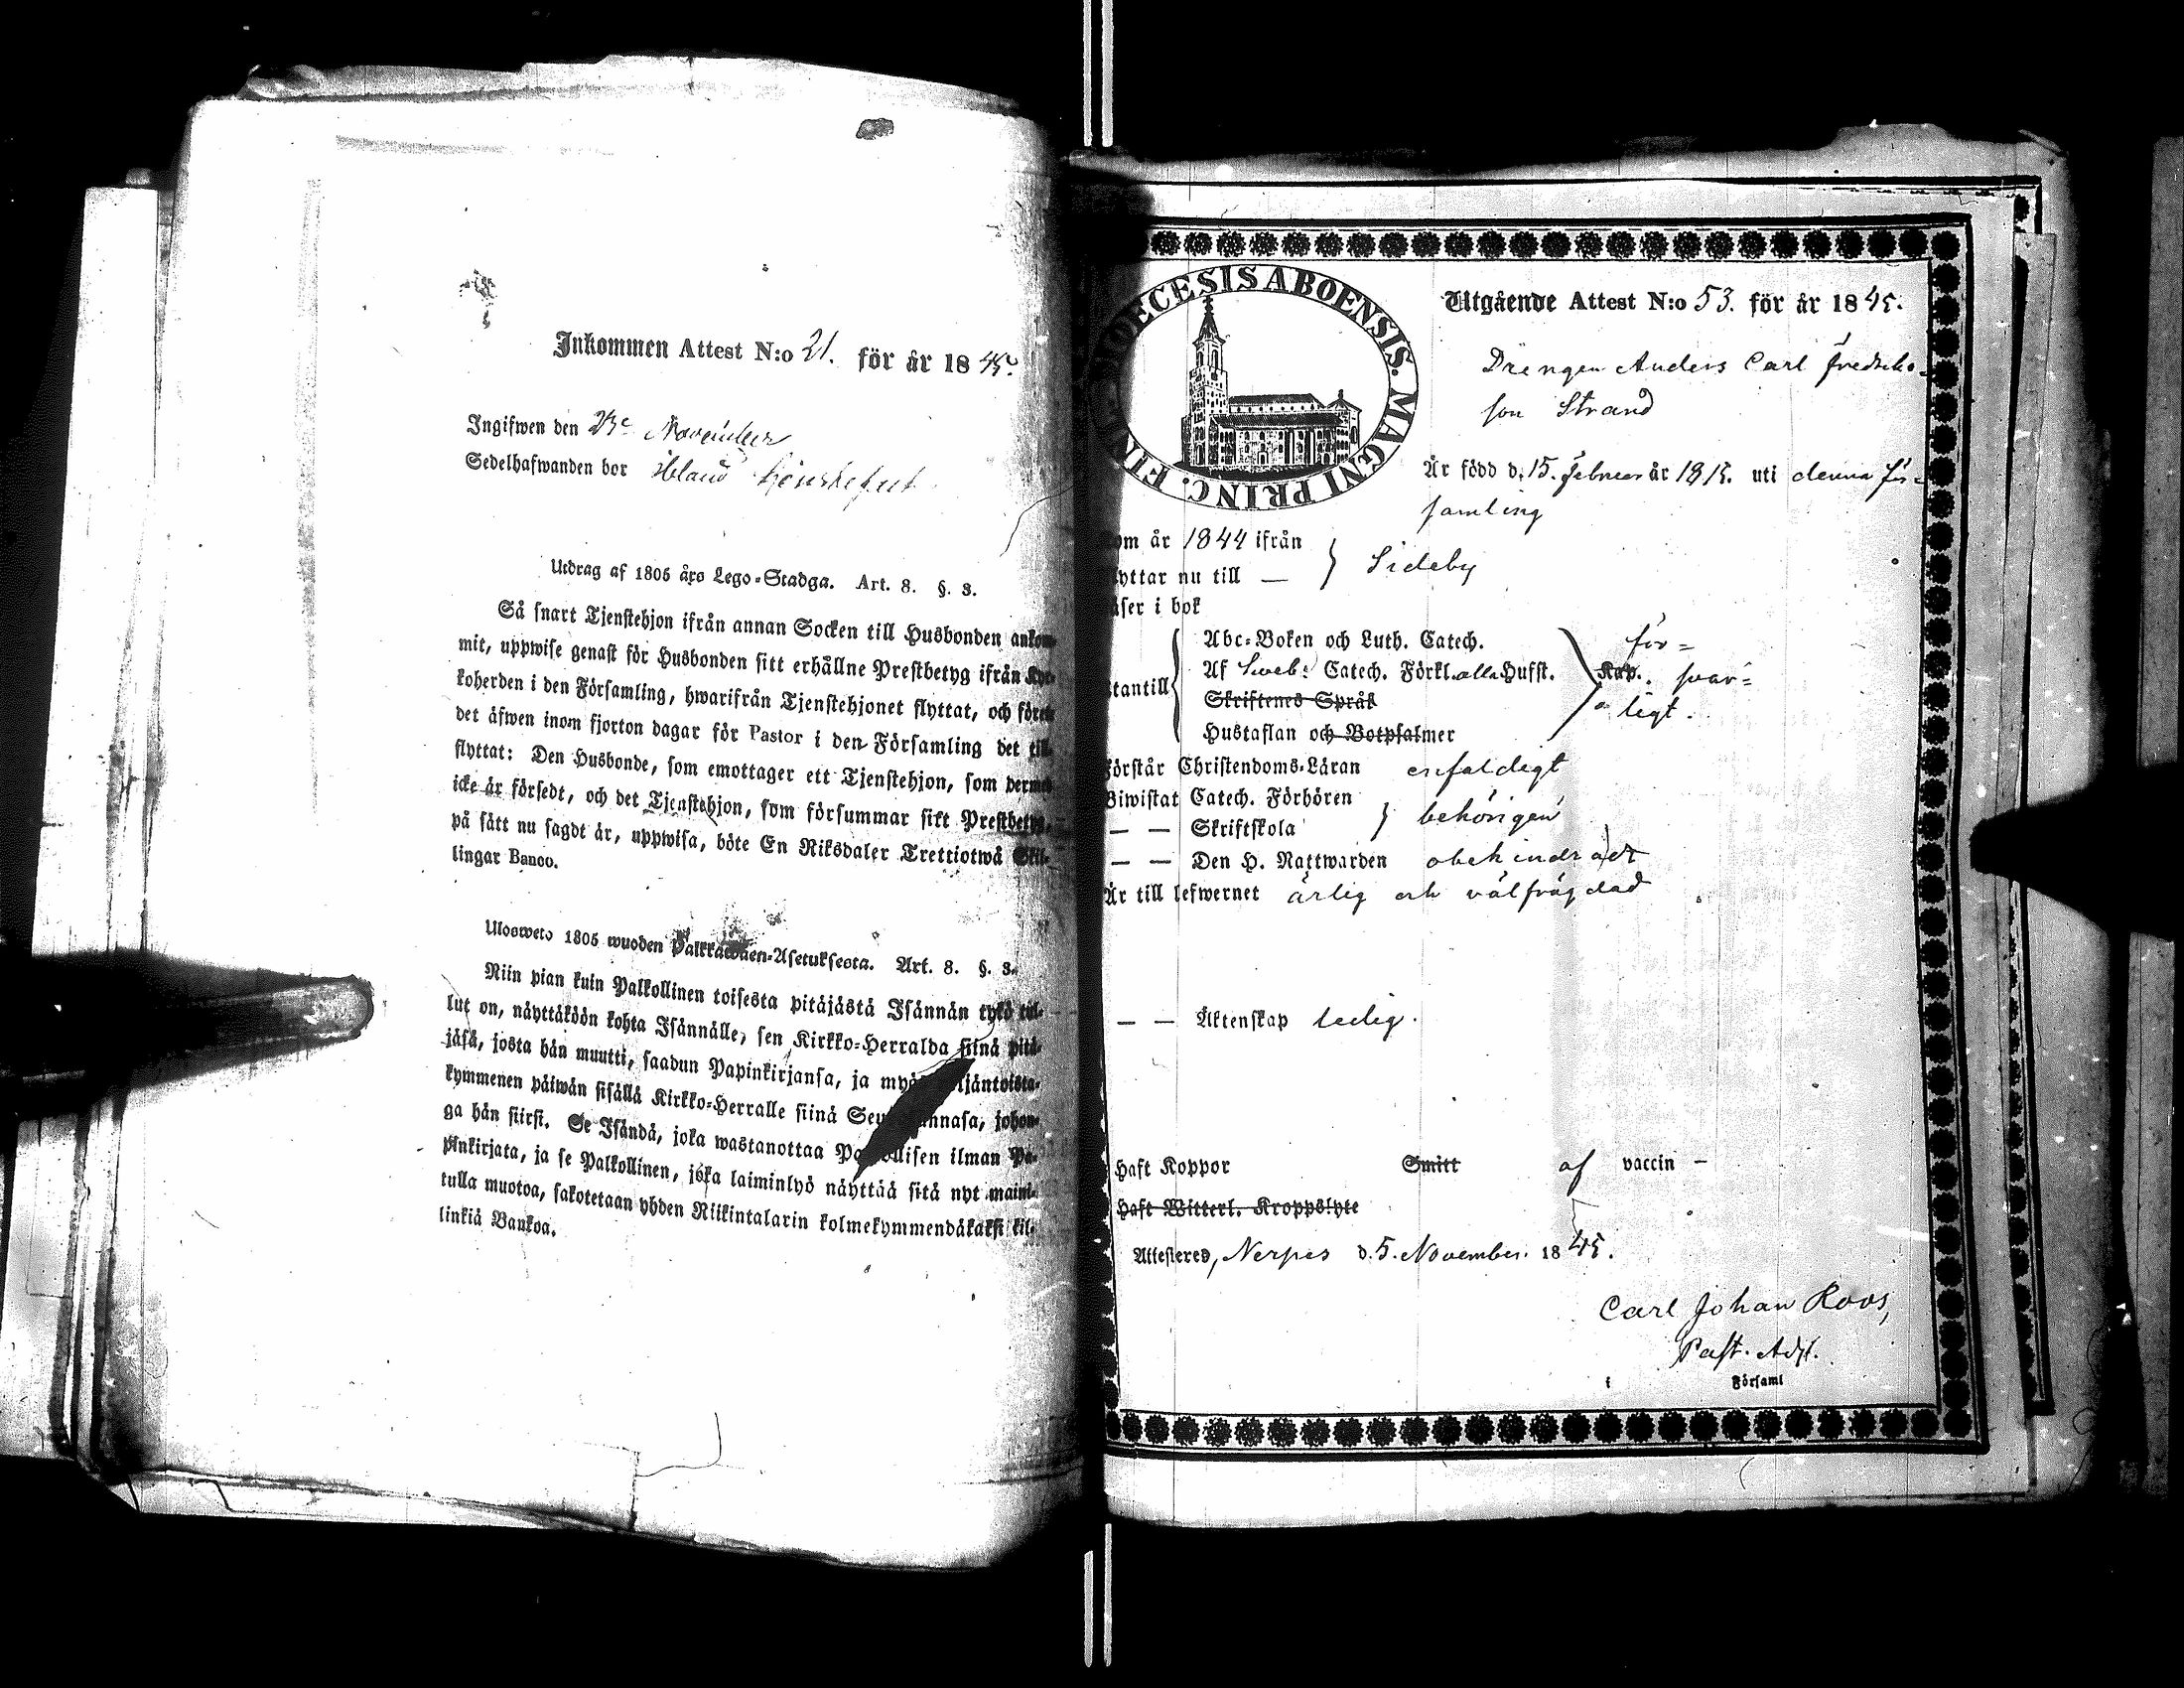 Inkommen Attest N:o 21. för år 1845.
Ingifwen den 23e November
Sedelhafwanden bor ibland
Utdrag af 1805 års Lego-Stadga. Art. 8. §. 3.
Så snart Tjenstehjon ifrån annan Socken till Husbonden ankom-
mit, uppwise genast för Husbonden sitt erhållne Prestbetyg ifrån Kyr-
koherden i den Församling, hwarifrån Tjenstehjonet flyttat, och förete
det äfwen inom fjorton dagar för Pastor i den Församling det till-
flyttat: Den Husbonde, som emottager ett Tjenstehjon, som dermed
icke är försedt, och det Tjenstehjon, som försummar sitt Prestbetyg,
på sätt nu sagdt är, uppwisa, böte En Riksdaler Trettiotwå Skil-
lingar Banco.
Ulosweto 1805 wuoden Palkkawäen-Asetuksesta. Art. 8. §. 3.
Niin pian kuin Palkollinen toisesta pitäjästä Isännän tykö tul-
lut on, näyttäköön kohta Isännälle, sen Kirkko-Herralda siinä pitä-
jäsä, josta hän muutti, saadun Papinkirjansa, ja myös neljäntoista-
kymmenen päiwän sisällä Kirkko-Herralle siinä Seurakunnasa, johon-
ga hän siirsi. Se Isändä, joka wastanottaa Palkollisen ilman Pa-
pinkirjata, ja se Palkollinen, joka laiminlyö näyttää sitä nyt maini-
tulla muotoa, sakotetaan yhden Riikintalarin kolmekymmendäkaksi kil-
linkiä Bankoa.
DIOECESIS ABOENSIS. MAGNI PRINC. FINL.
Utgående Attest N:o 53. för år 1845.
Drengen Anders Carl Fredriks-
son Strand
Är född d. 15. Februar år 1815. uti denna för-
samling
om år 1844 ifrån
lyttar nu till — } Sideby
äser i bok
Abc-Boken och Luth. Catech. för-
tantill Af Sweb: Catech. Förkl. alla Hufst. Kap. svar-
Skriftenes Språk ligt.
Hustaflan och Botpsalmer
Förstår Christendoms-Läran enfaldigt
Biwistat Catech. Förhören
— — Skriftskola } behörigen
— — Den H. Nattwarden obehindradt
Är till lefwernet ärlig och välfrägdad
— — Äktenskap ledig.
Haft Koppor Smitt af vaccin —
Haft Witterl. Kroppslyte
Attesteres, Nerpes d. 5. November. 1845.
Carl Johan Roos,
Past. Adj.
i Församl